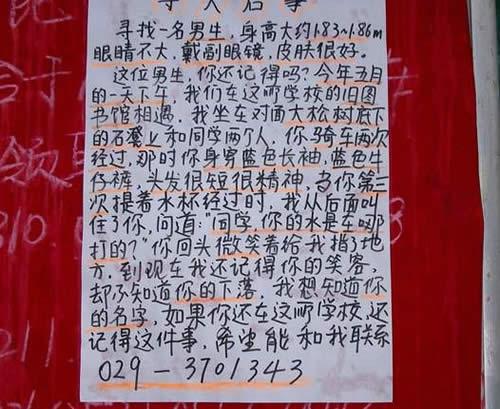 寻人启事
寻找一名男生，身高大约1.83~1.86m
眼睛不大，戴副眼镜，皮肤很好。
这位男生，你还记得吗？今年五月
的一天下午，我们在这所学校的旧图
书馆相遇，我坐在对面大松树底下
的石凳上和同学两个人，你骑车两次
经过，那时你身穿蓝色长袖，蓝色牛
仔裤，头发很短很精神，当你第三
次提着水杯经过时，我从后面叫
住了你，问道："同学，你的水是在哪
打的？"你回头微笑着给我指了地
方，到现在我还记得你的笑容，
却不知道你的下落，我想知道你
的名字，如果你还在这所学校，还
记得这件事，希望能和我联系
029-3701343